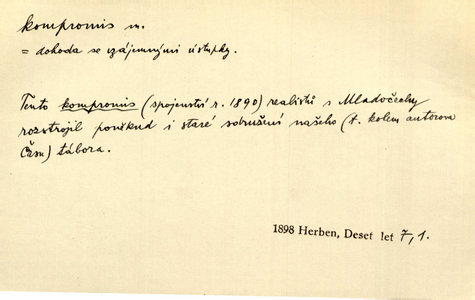 kompromis m.
= dohoda se vzájemnými ústupky.
Tento kompromis (spojenství r. 1890) realistů s Mladočechy
rozstrojil poněkud i staré sdružení našeho (t. kolem autorova
Času) tábora.
1898 Herben, Deset let 7,1.